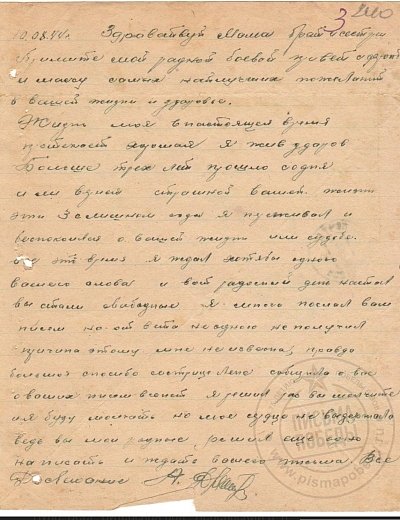 3
10.08.44г. Здравствуй Мама брат и сестры
Примите мой радной боевой привет
и массу самых наилучших пожеланий
в вашей жизни и здоровье.
Жизнь моя в настоящея время
протекает хорошая я жив здоров
Больше трех лет прошло
вашей жизни
эти 3 слишком года я переживал и
беспокоился о вашей жизни или судьбе.
это время я ждал хотябы одного
вашего слова и вот радосный день настал
вы стали свободные я много послал вам
писем но ответа не одного не получил
причина этому мне не исвесна, правда
большое спасибо сестрице сообщила о вас
о ваших писем я решил раз вы молчите
и я буду молчать но мое сердцо не выдержало
ведь вы мои радные, решил еще одно
написать и ждать вашего письма. Все
Досвидание А.
ПИСЬМА ПОБЕДЫ
www.pismapob